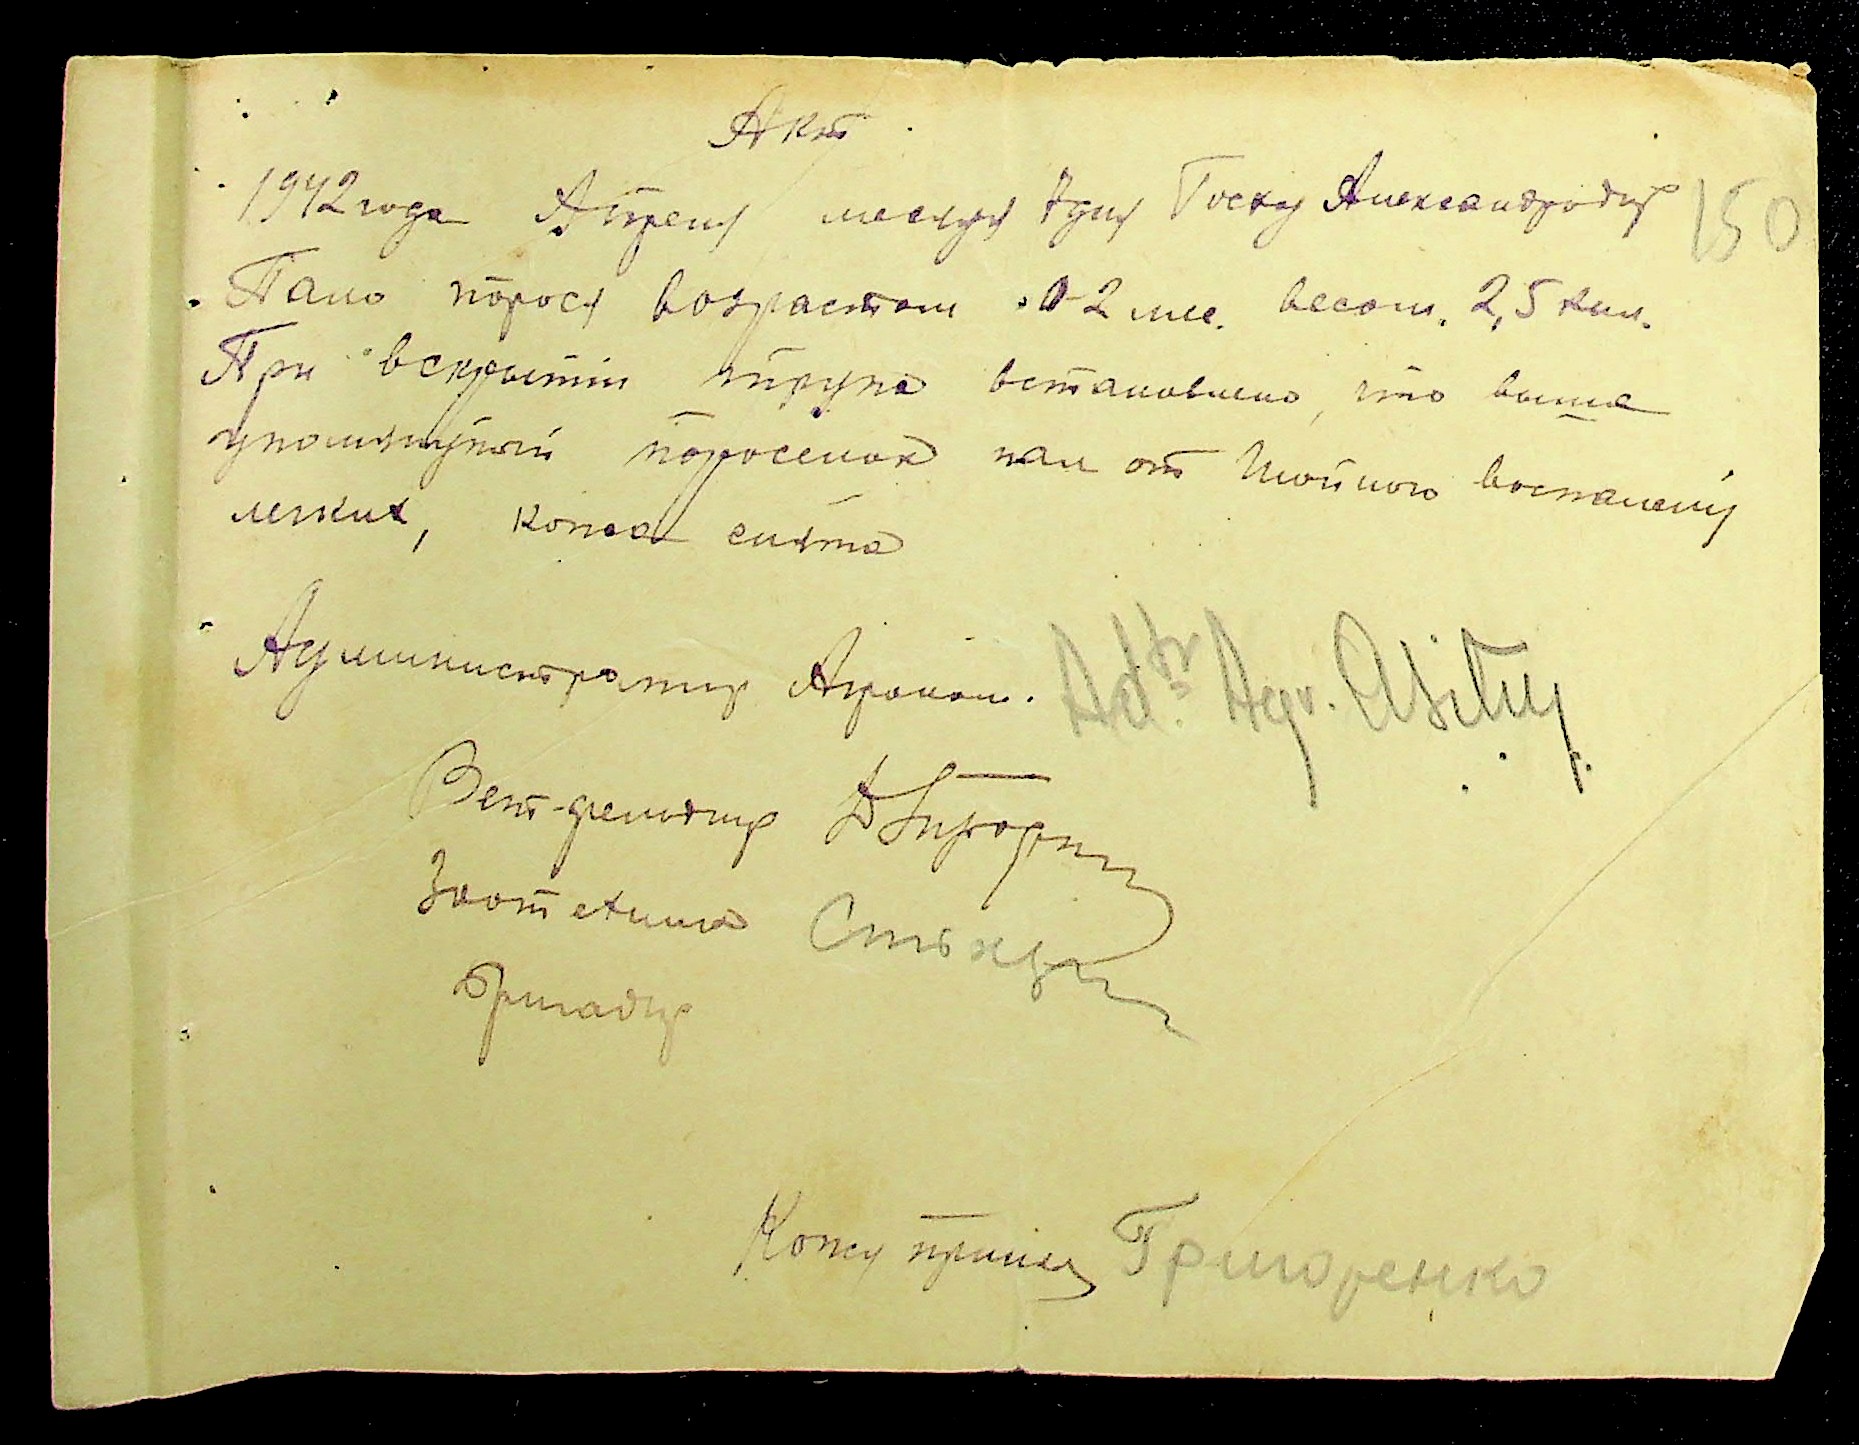 Акт
1942 года Апреля месяця 7 дня Госхоз Александродар
150
Пало порося возрастом 0-2 мес. весом. 2,5 кил.
При вскрытии трупа встановлено, что выше
упомянутый поросенок пал от гнойного воспаления
легких, кожа снята
Администратор Агроном. Ad-tr Agr.
Вет-фельдшер
Зоотехник
Бригадир
Кожу принял Григоренко